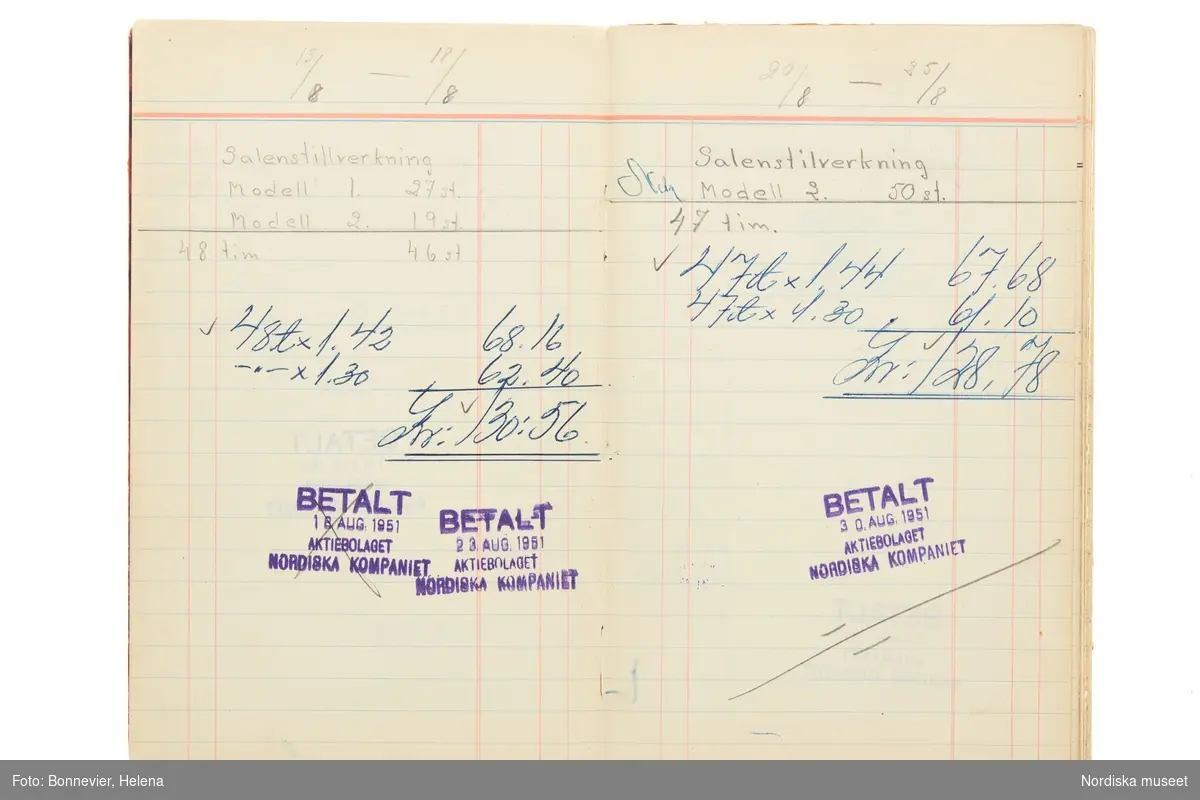 13/8 — 18/8
Salenstillverkning
Modell 1. 27 st.
Modell 2. 19 st.
48 tim 46 st
✓ 48t x 1.42 68.16
—"— x 1.30 62.40
Kr: ✓ 130:56
BETALT
16 AUG. 1951
AKTIEBOLAGET
NORDISKA KOMPANIET
BETALT
23. AUG. 1951
AKTIEBOLAGET
NORDISKA KOMPANIET
20/8 — 25/8
Salenstilverkning
Modell 2. 50 st.
47 tim.
✓ 47t x 1.44 67.68
47t x 1.30 61.10
Kr: ✓ 128,78
BETALT
30. AUG. 1951
AKTIEBOLAGET
NORDISKA KOMPANIET
Foto: Bonnevier, Helena
Nordiska museet